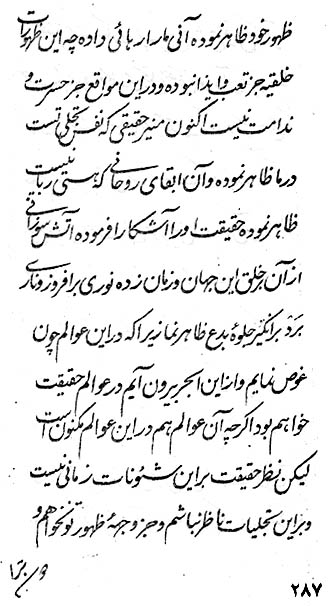 ظهور خود ظاهر نموده آنی ما را رهائی داده چه این ظهورات
خلقیه جز تعب و ایذا نبوده و در این مواقع جز حسرت و
ندامت نیست اکنون منیر حقیقی که نفس تجلی تست
در ما ظاهر نموده و آن ابقای روحانی که هستی ربانیست
ظاهر نموده حقیقت او را آشکارا فرموده آتش سوزانی
از آن بر خلق این جهان و زمان زده نوری برافروز و ناری
بَرَد برانگیز جلوهٔ بدع ظاهر نما زیرا که در این عوالم چون
غوص نمایم و از این ابحر بیرون آیم در عوالم حقیقت
خواهم بود اگر چه آن عوالم هم در این عوالم مکنون است
لیکن نظر حقیقت بر این شئونات زمانی نیست
و بر این تجلیات ناظر نباشم و جز وجههٔ ظهور تو نخواهم و
۲۸۷